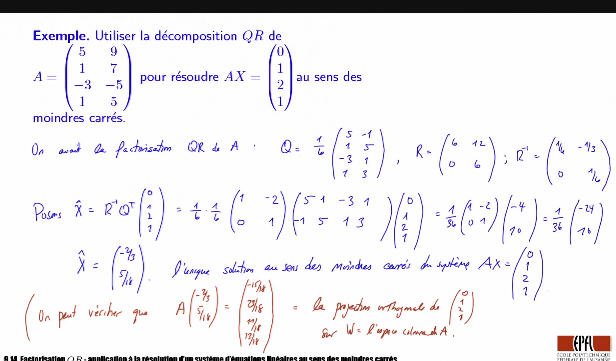 Exemple. Utiliser la décomposition QR de
A = (5 9; 1 7; −3 −5; 1 5) pour résoudre AX = (0; 1; 2; 1) au sens des
moindres carrés.
On avait la factorisation QR de A : Q = 1/6 (5 -1; 1 5; -3 1; 1 3), R = (6 12; 0 6); R⁻¹ = (1/6 -1/3; 0 1/6)
Posons X̂ = R⁻¹Qᵀ (0; 1; 2; 1) = 1/6 · 1/6 (1 -2; 0 1) (5 1 -3 1; -1 5 1 3) (0; 1; 2; 1) = 1/36 (1 -2; 0 1) (-4; 10) = 1/36 (-24; 10)
X̂ = (-2/3; 5/18). l'unique solution au sens des moindres carrés du système AX = (0; 1; 2; 1)
(On peut vérifier que A (-2/3; 5/18) = (-15/18; 23/18; 11/18; 13/18) = la projection orthogonale de (0; 1; 2; 1)
sur W = l'espace colonne de A.
9.14 Factorisation QR - application à la résolution d'un système d'équations linéaires au sens des moindres carrés
ÉCOLE POLYTECHNIQUE